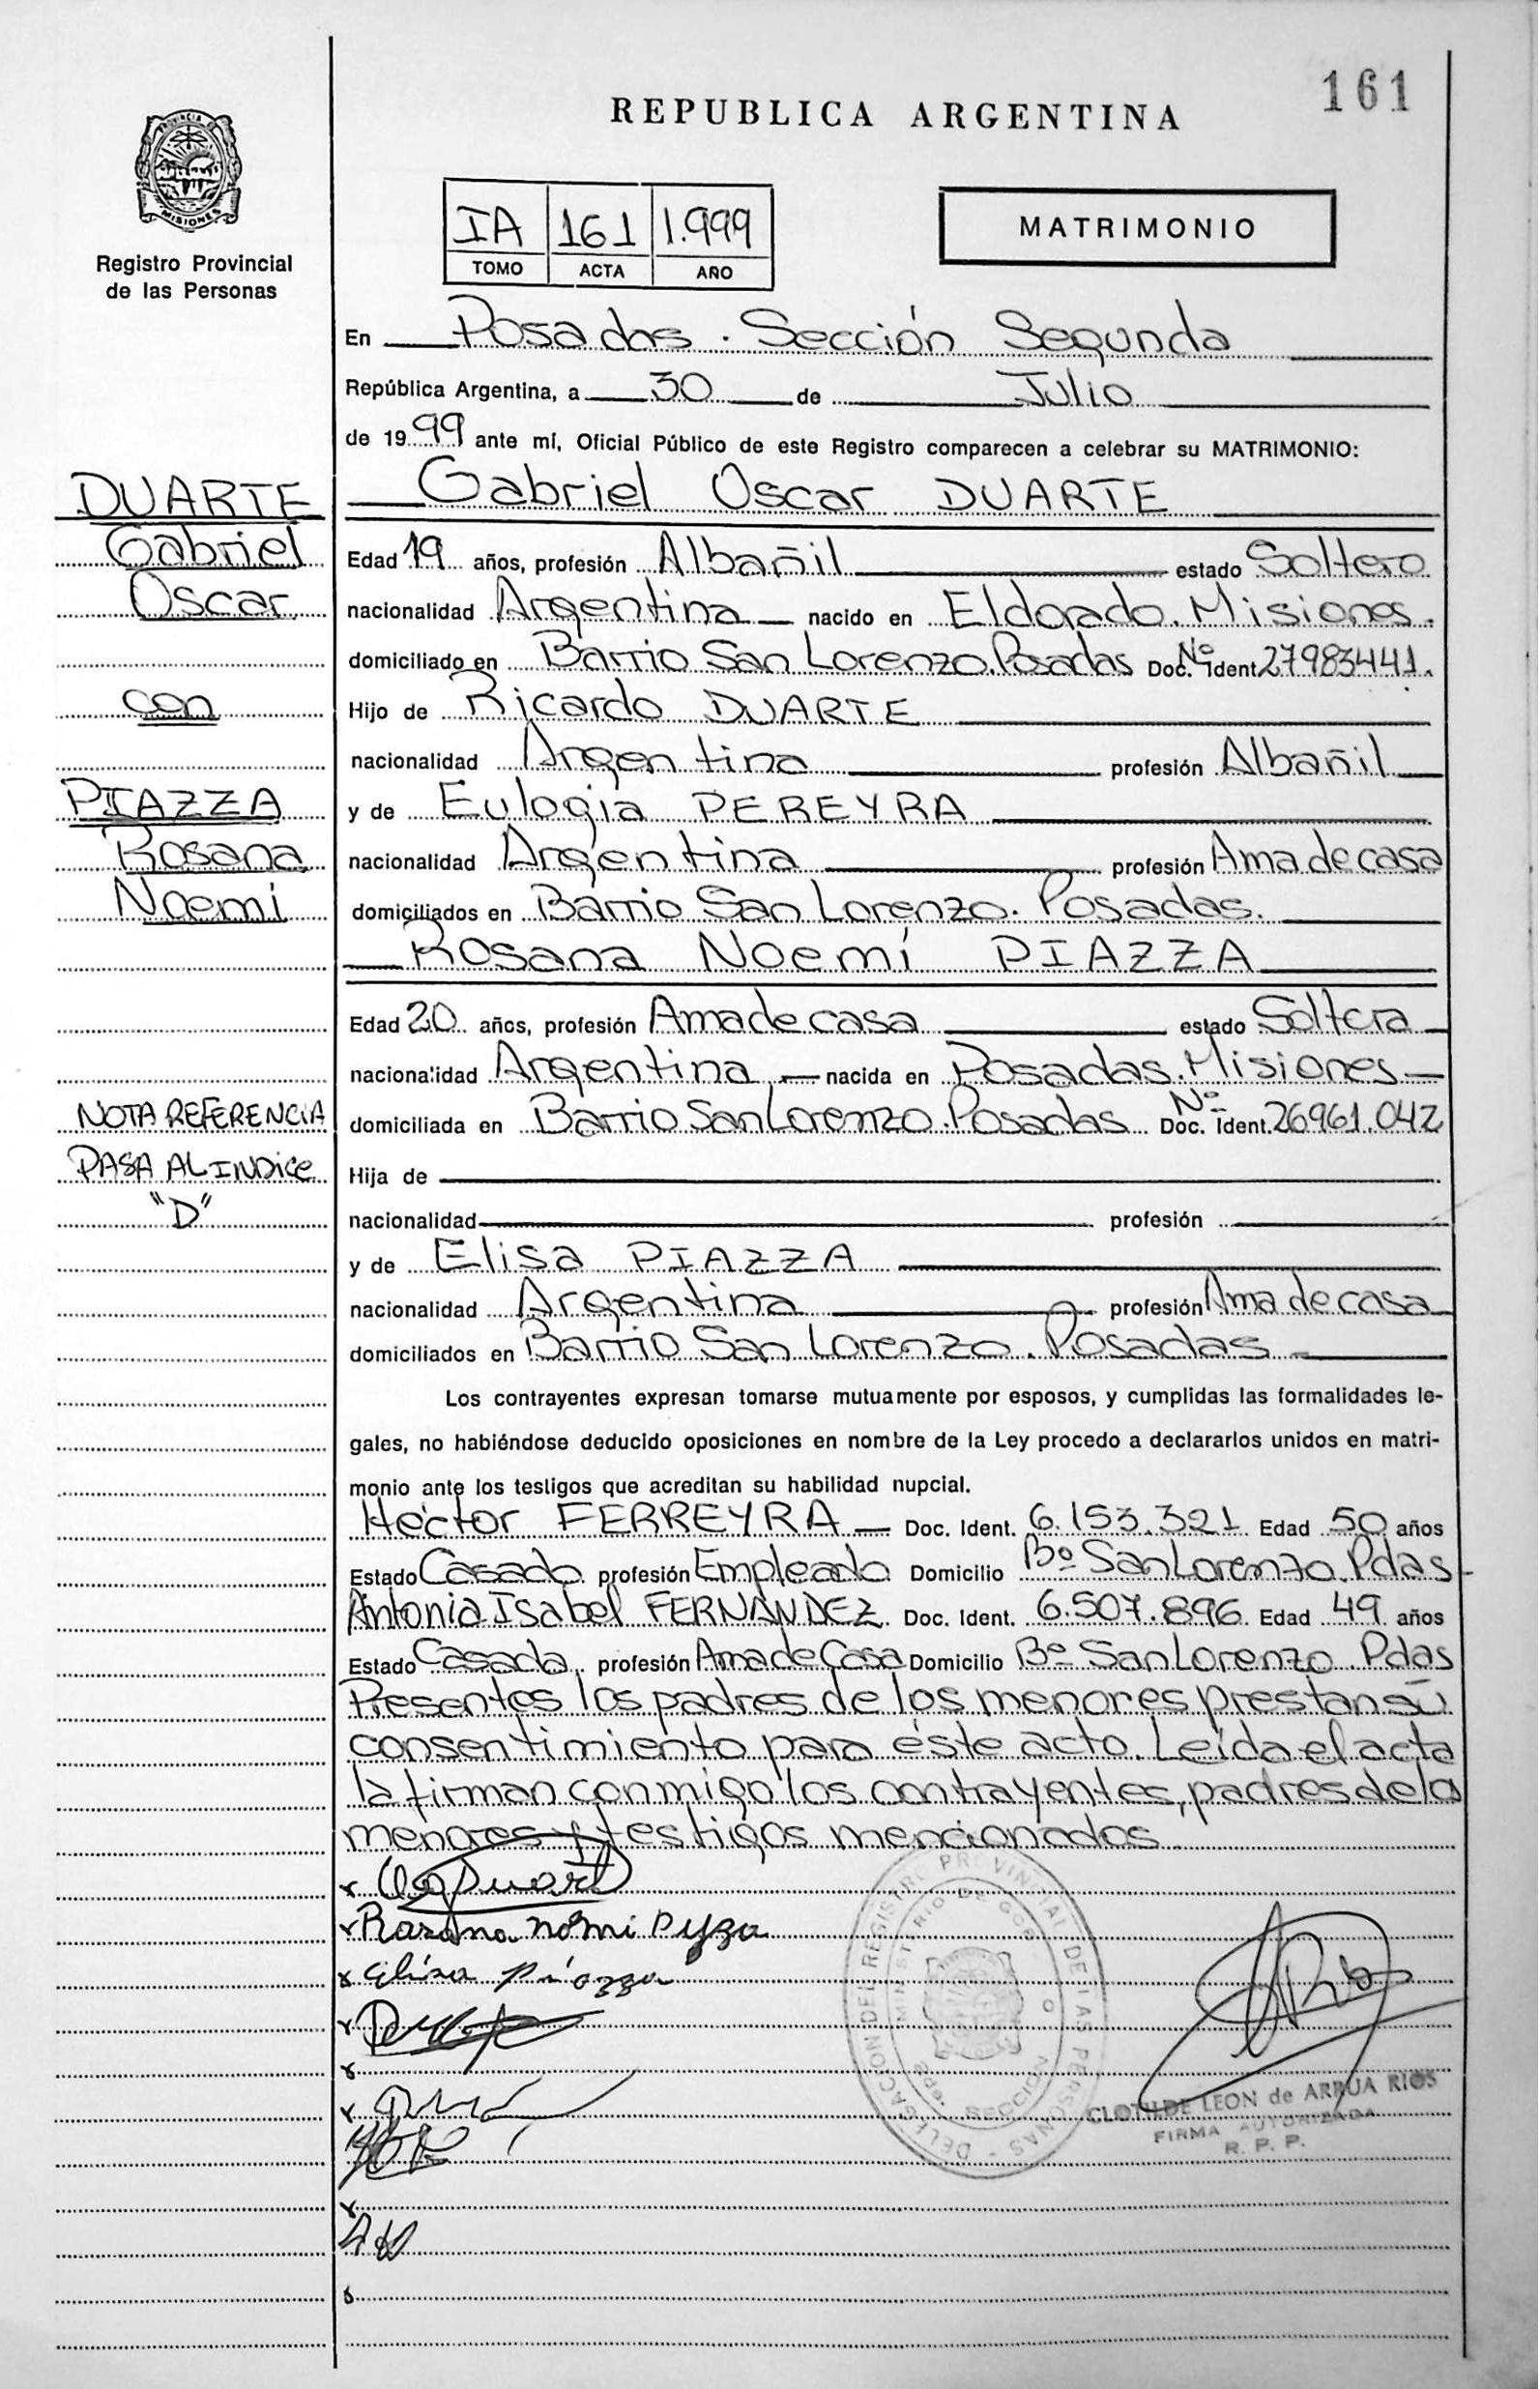 161
REPUBLICA ARGENTINA
PROVINCIA DE
MISIONES
Registro Provincial
de las Personas
IA 161 1.999
TOMO ACTA AÑO
MATRIMONIO
En Posadas. Sección Segunda
República Argentina, a 30 de Julio
de 1999 ante mí, Oficial Público de este Registro comparecen a celebrar su MATRIMONIO:
DUARTE
Gabriel
Oscar
con
PIAZZA
Rosana
Noemí
NOTA REFERENCIA
PASA AL INDICE
"D"
Gabriel Oscar DUARTE
Edad 19 años, profesión Albañil estado Soltero
nacionalidad Argentina nacido en Eldorado. Misiones.
domiciliado en Barrio San Lorenzo. Posadas Doc. Nº ident 27983441.
Hijo de Ricardo DUARTE
nacionalidad Argentina profesión Albañil
y de Eulogia PEREYRA
nacionalidad Argentina profesión Ama de casa
domiciliados en Barrio San Lorenzo. Posadas.
Rosana Noemí PIAZZA
Edad 20 años, profesión Ama de casa estado Soltera
nacionalidad Argentina nacida en Posadas. Misiones
domiciliada en Barrio San Lorenzo. Posadas Doc. Nº Ident. 26961.042
Hija de
nacionalidad profesión
y de Elisa PIAZZA
nacionalidad Argentina profesión Ama de casa
domiciliados en Barrio San Lorenzo. Posadas
Los contrayentes expresan tomarse mutuamente por esposos, y cumplidas las formalidades le-
gales, no habiéndose deducido oposiciones en nombre de la Ley procedo a declararlos unidos en matri-
monio ante los testigos que acreditan su habilidad nupcial.
Héctor FERREYRA Doc. Ident. 6.153.321 Edad 50 años
Estado Casado profesión Empleado Domicilio Bº San Lorenzo. Pdas
Antonia Isabel FERNANDEZ Doc. Ident. 6.507.896 Edad 49 años
Estado Casada profesión Ama de Casa Domicilio Bº San Lorenzo. Pdas
Presentes los padres de los menores prestan su
consentimiento para éste acto. Leída el acta
la firman conmigo los contrayentes, padres de lo
menores y testigos mencionados.
Duart
Rosana nomi Pyza
Elisa Piazza
DELEGACION DEL REGISTRO PROVINCIAL DE LAS PERSONAS
MINISTERIO DE GOB
SECCION
CLOTILDE LEON de ARRUA RIOS
FIRMA AUTORIZADA
R. P. P.